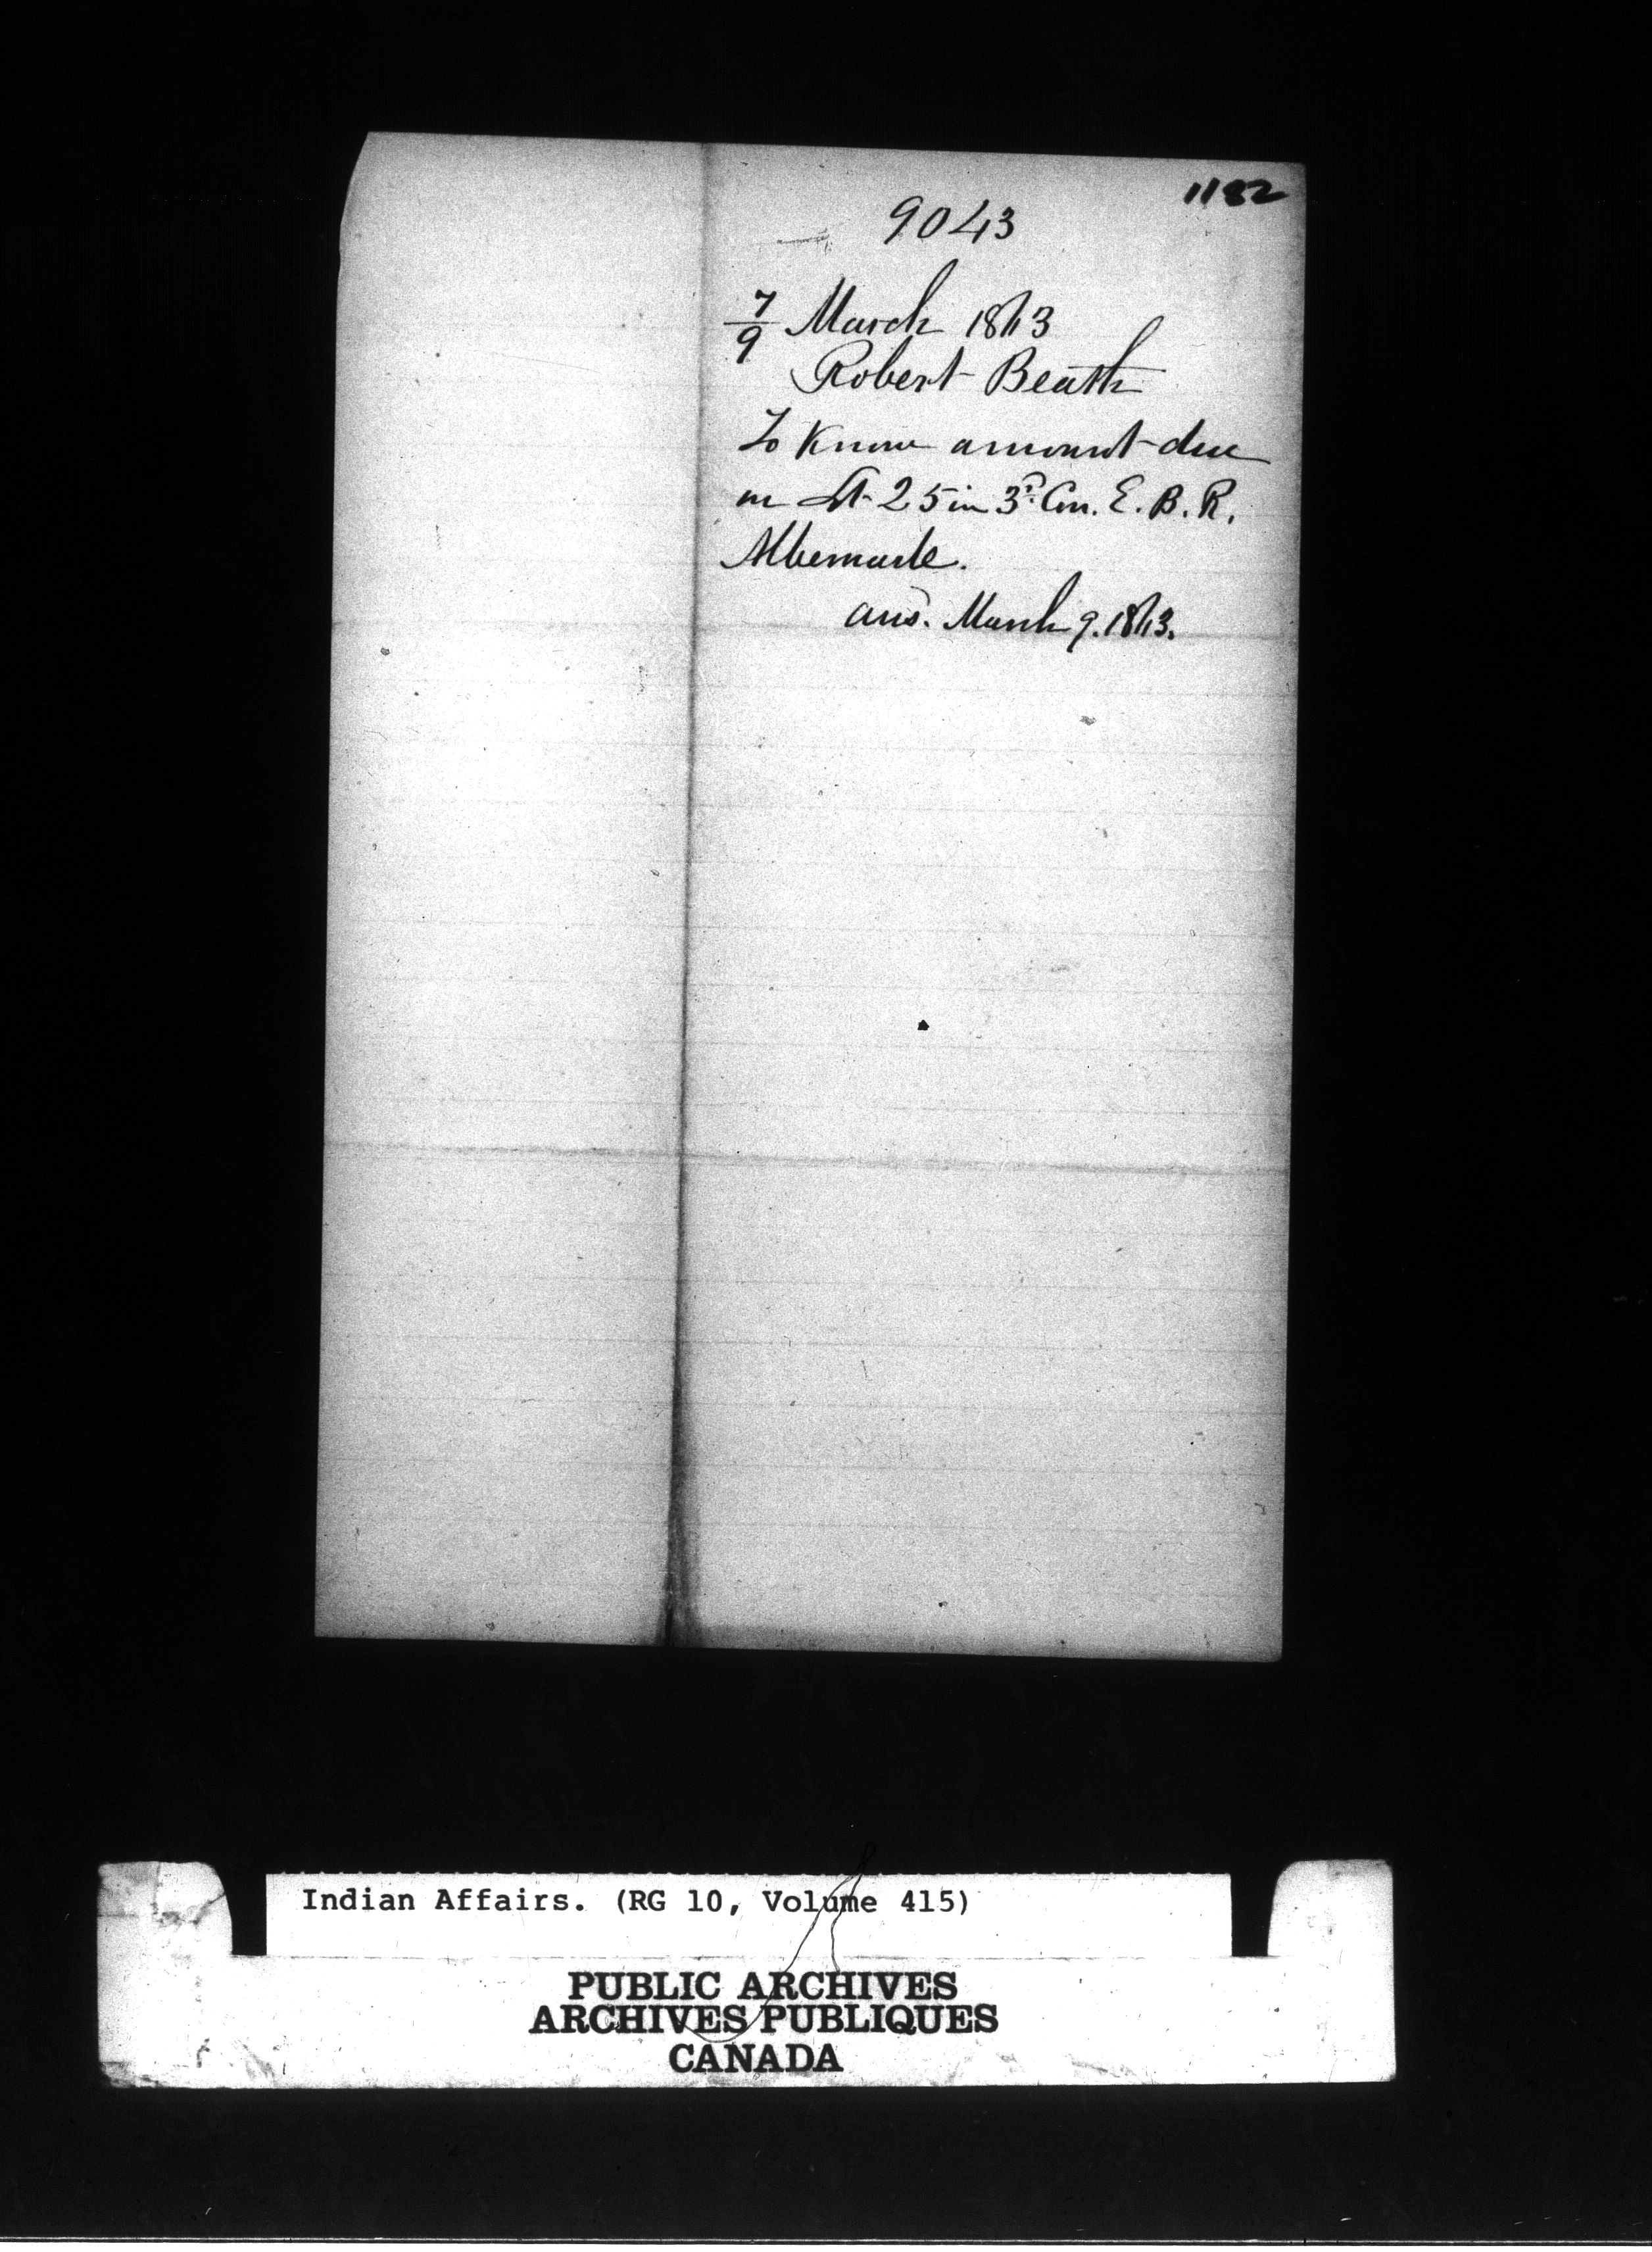 1182
9043
7/9 March 1873
Robert Beath
To Know amount due
on Lt 25 in 3rd Con. E. B. R.
Albemarle.
ans. March 9. 1873.
Indian Affairs. (RG 10, Volume 415)
PUBLIC ARCHIVES
ARCHIVES PUBLIQUES
CANADA